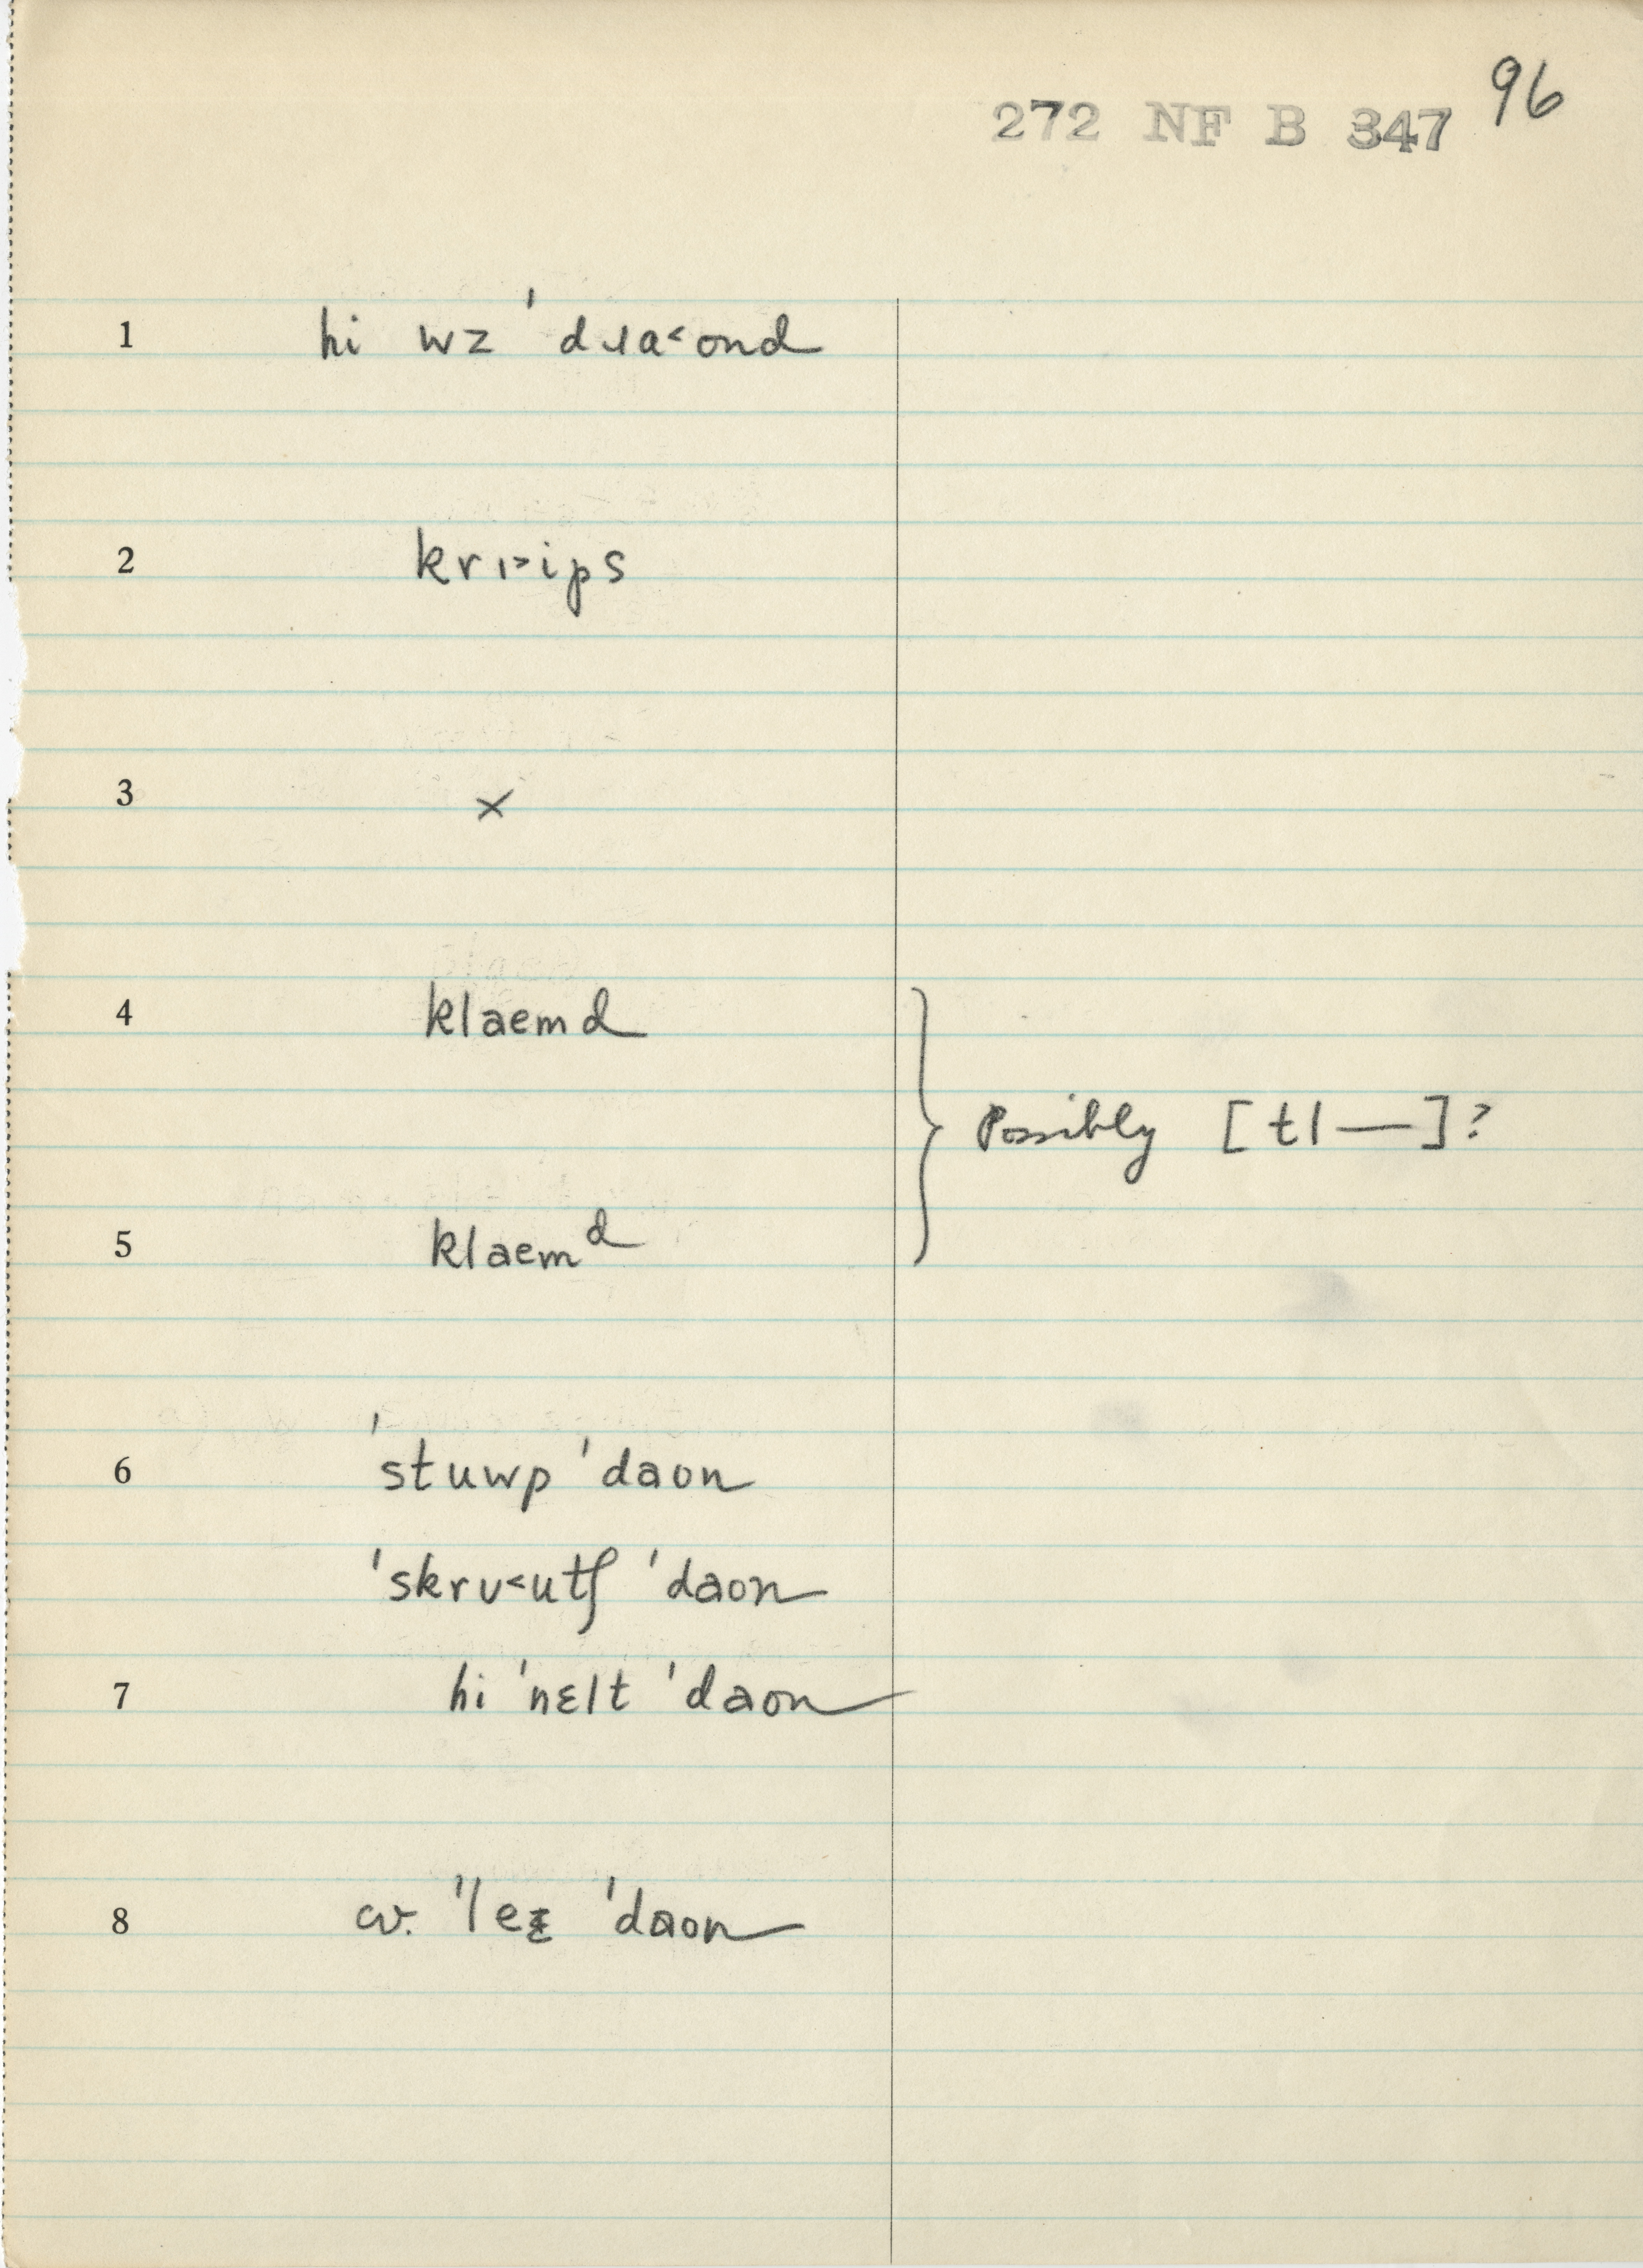 96
272 NF B 347
1 hi wz ˈdɹa˂ond
2 krɪ˃ips
3 ×
4 klaemd
Possibly [tl—]?
5 klaemᵈ
6 ˈstuwp ˈdaon
ˈskrʊ˂utʃ ˈdaon
7 hi ˈnɛlt ˈdaon
8 cv. ˈle ˈdaon